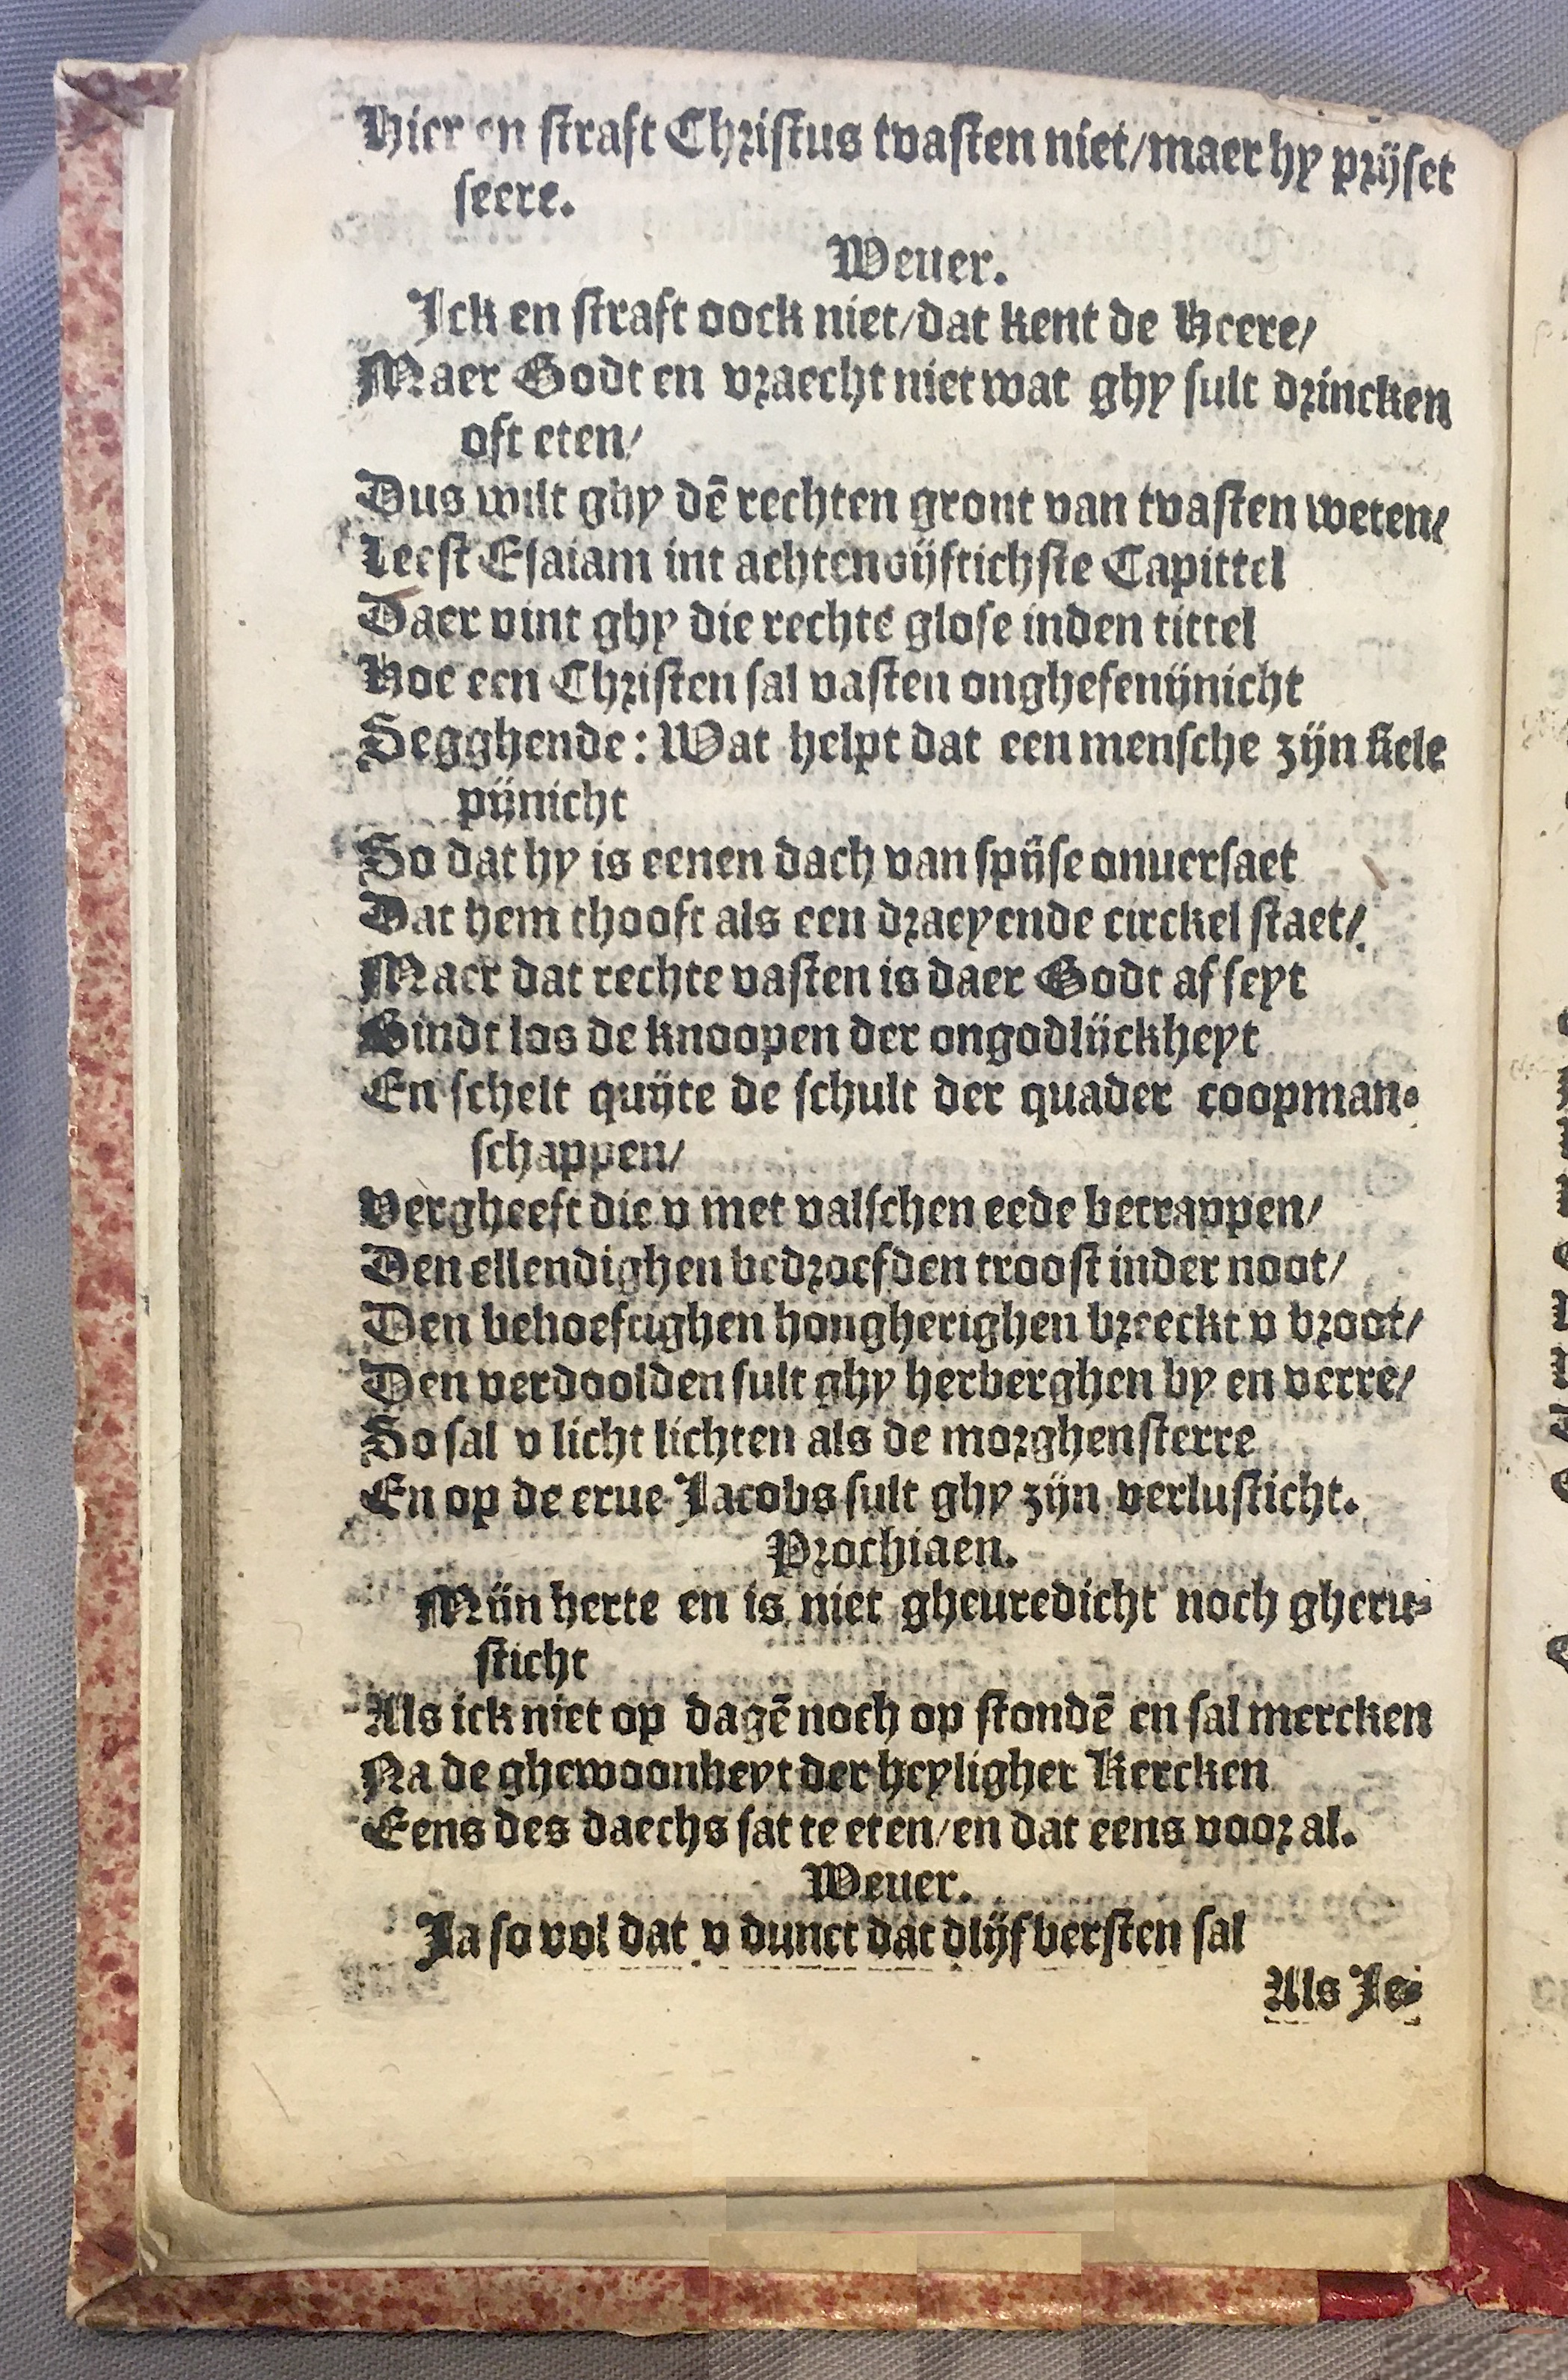 Hier en straft Christus tvasten niet/maer hy prijset
seere.
Weuer.
Ick en straft oock niet/dat kent de Heere/
Maer Godt en vraecht niet wat ghy sult drincken
oft eten/
Dus wilt ghy dē rechten gront van tvasten weten/
Leest Esaiam int achtenvijftichste Capittel
Daer vint ghy die rechte glose inden tittel
Hoe een Christen sal vasten onghefenijnicht
Segghende: Wat helpt dat een mensche zijn siele
pijnicht
So dat hy is eenen dach van spijse onuersaet
Dat hem thooft als een draeyende circkel staet/
Maer dat rechte vasten is daer Godt af seyt
Bindt los de knoopen der ongodlijckheyt
En schelt quijte de schult der quader coopman-
schappen/
Vergheeft die v met valschen eede betrappen/
Den ellendighen bedroefden troost inder noot/
Den behoeftighen hongherighen breeckt v broot/
Den verdoolden sult ghy herberghen by en verre/
So sal v licht lichten als de morghensterre
En op de erue Jacobs sult ghy zijn verlusticht.
Prochiaen.
Mijn herte en is niet gheuredicht noch gheru-
sticht
Als ick niet op dagē noch op stondē en sal mercken
Na de ghewoonheyt der heyligher Kercken
Eens des daechs sat te eten/en dat eens voor al.
Weuer.
Ja so vol dat v dunct dat dlijf versten sal
Als Je-